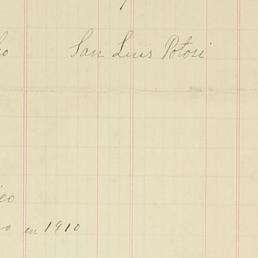 San Luis Potosi
en 1910